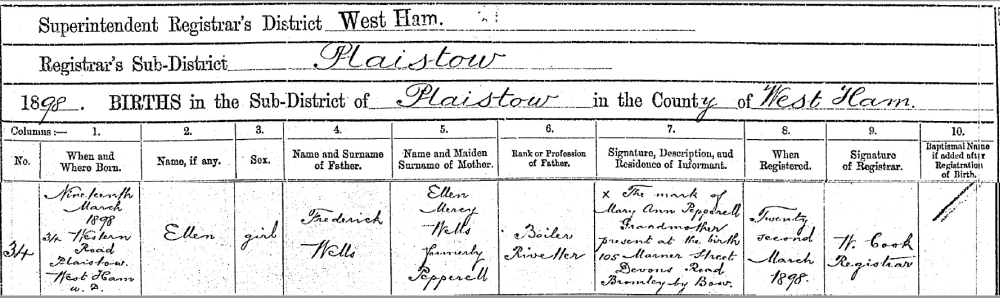 Superintendent Registrar's District West Ham.
Registrar's Sub-District Plaistow
1898. BIRTHS in the Sub-District of Plaistow in the County of West Ham.
Columns:— 1. 2. 3. 4. 5. 6. 7. 8. 9. 10.
No.
When and
Where Born.
Name, if any.
Sex.
Name and Surname
of Father.
Name and Maiden
Surname of Mother.
Rank or Profession
of Father.
Signature, Description, and
Residence of Informant.
When
Registered.
Signature
of Registrar.
Baptismal Name
if added after
Registration
of Birth.
34
Nineteenth
March
1898
34 Western
Road
Plaistow.
West Ham
Ellen
girl
Frederick
Wells
Ellen
Mercy
Wells
formerly
Pepperell
Boiler
Rivetter
x The mark of
Mary Ann Pepperell
Grandmother
present at the birth
105 Marner Street
Devons Road
Bromley by Bow.
Twenty
second
March
1898.
W. Cook
Registrar